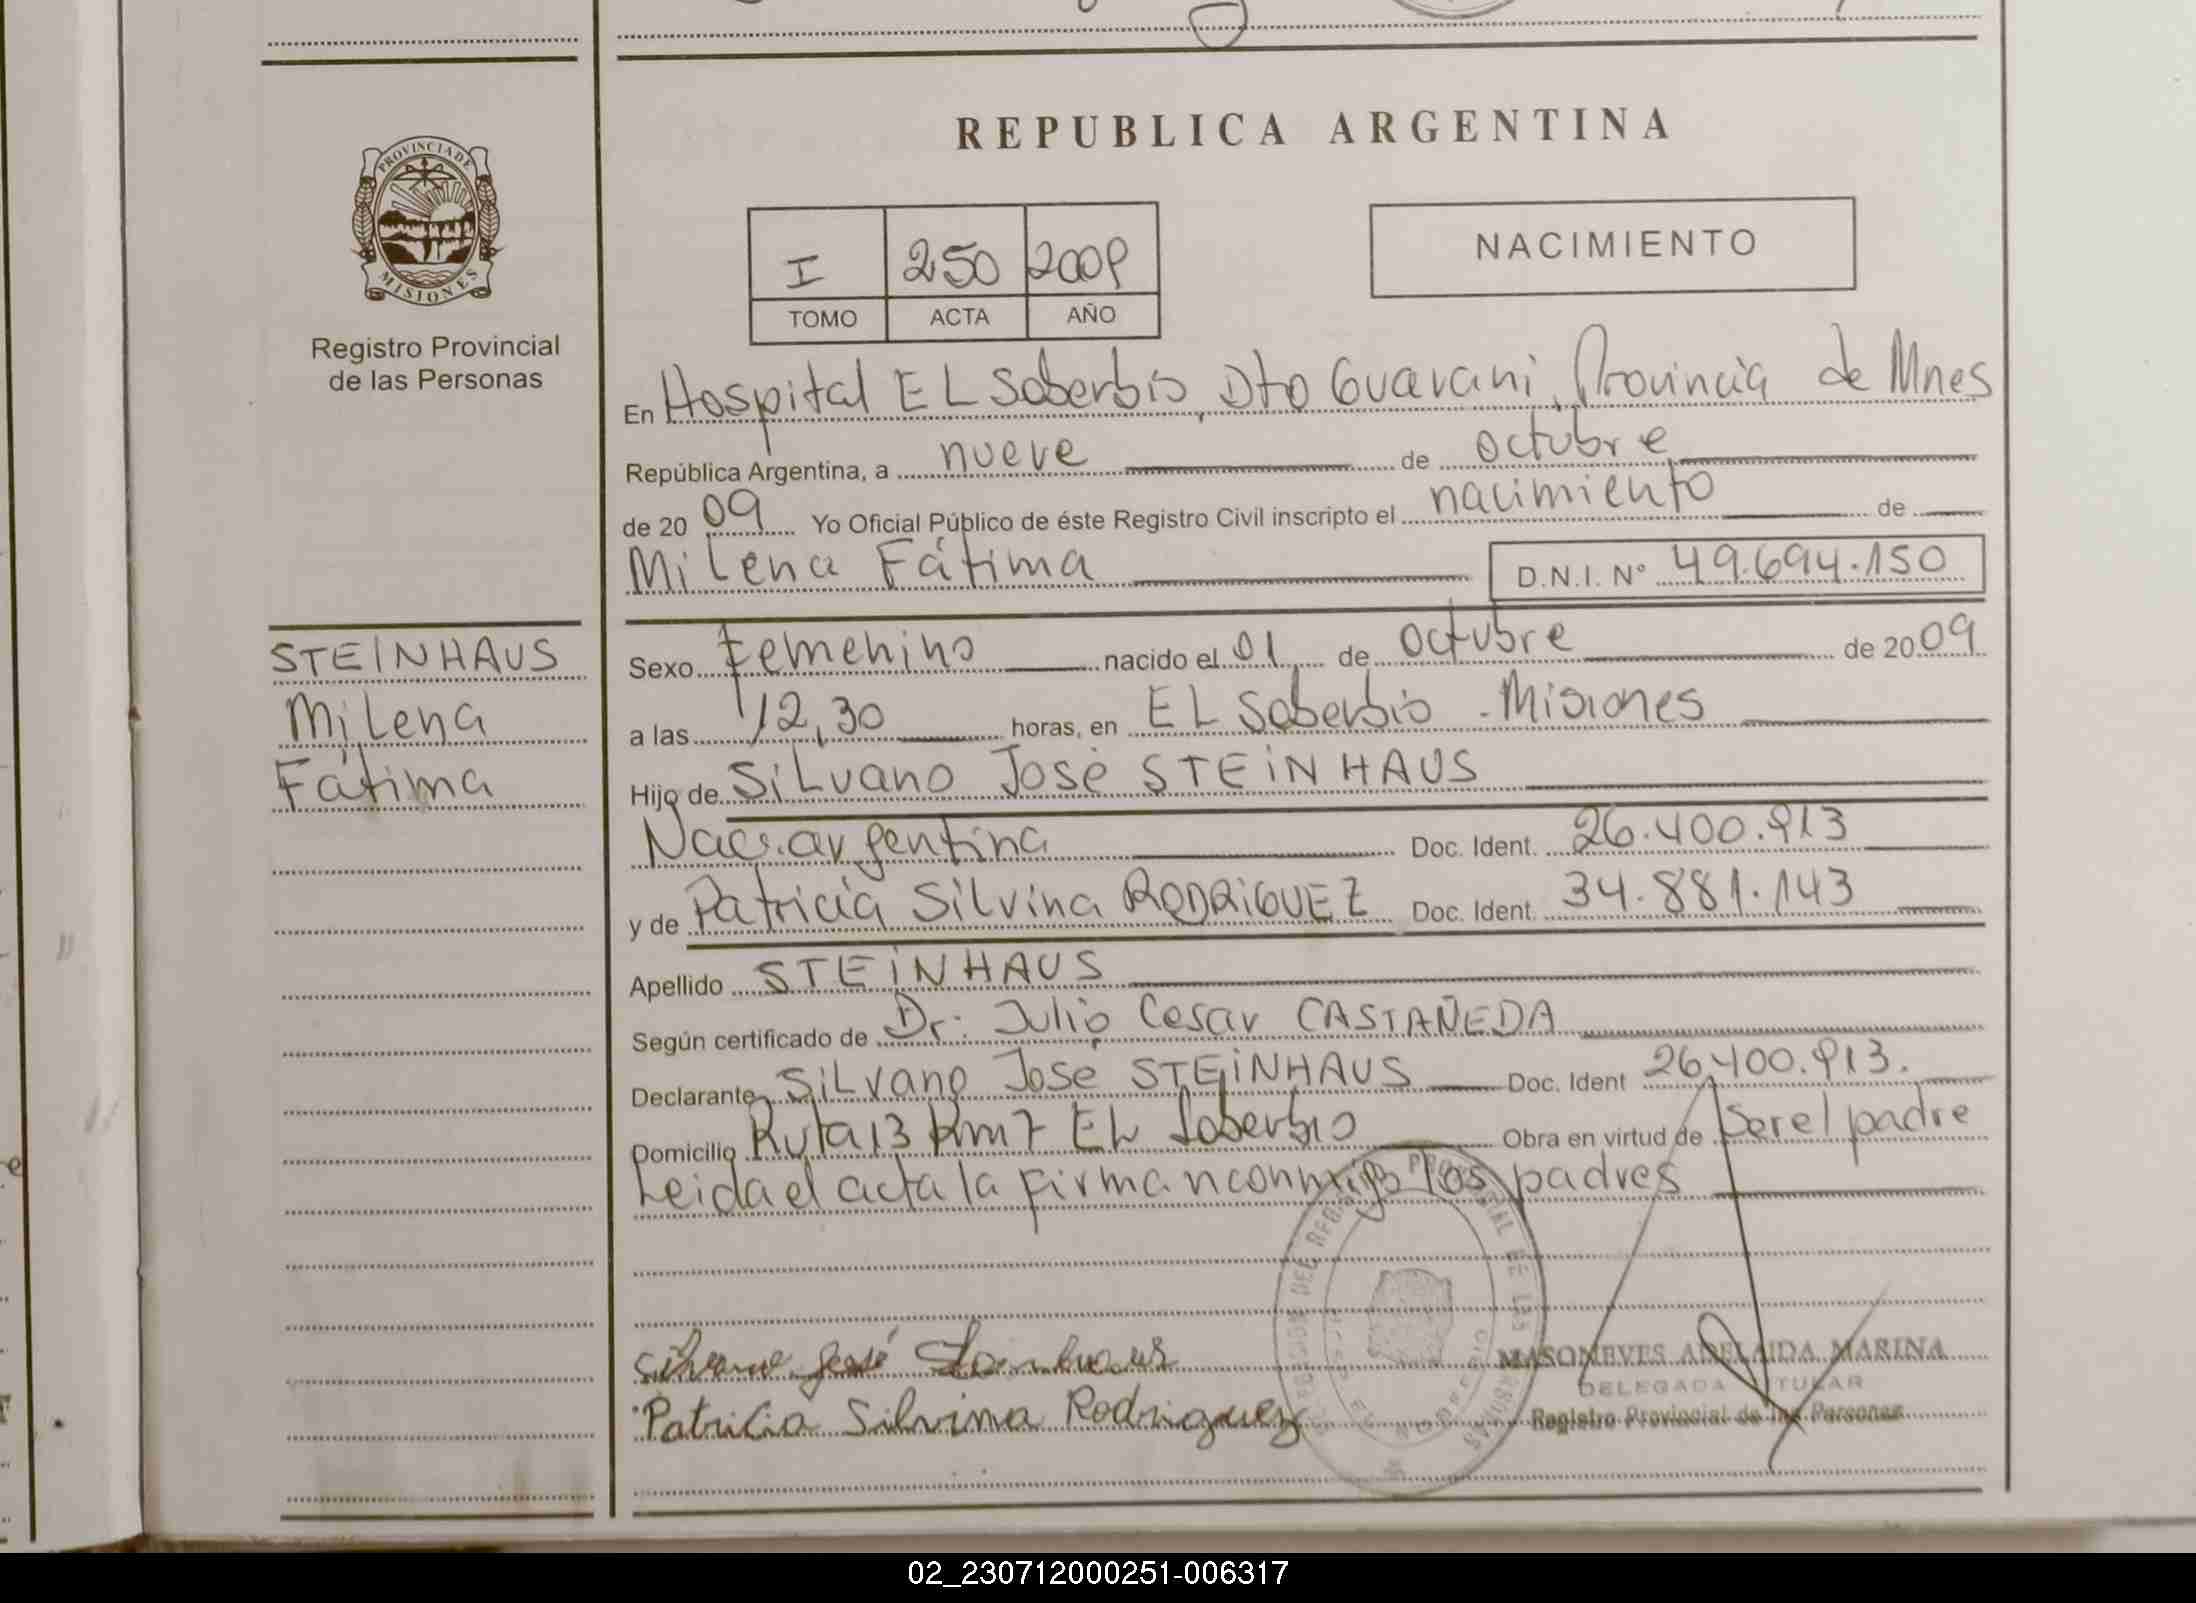 PROVINCIA DE
MISIONES
Registro Provincial
de las Personas
STEINHAUS
Milena
Fátima
REPUBLICA ARGENTINA
I 250 2009
TOMO ACTA AÑO
NACIMIENTO
En Hospital EL Soberbio, Dto Guarani, Provincia de Mnes
República Argentina, a nueve de octubre
de 2009 Yo Oficial Público de éste Registro Civil inscripto el nacimiento de
Milena Fátima D.N.I. Nº 49.694.150
Sexo femenino nacido el 01 de octubre de 2009
a las 12,30 horas, en EL Soberbio - Misiones
Hijo de Silvano José STEINHAUS
Nac. argentina Doc. Ident. 26.400.913
y de Patricia Silvina RODRIGUEZ Doc. Ident. 34.881.143
Apellido STEINHAUS
Según certificado de Dr: Julio Cesar CASTAÑEDA
Declarante Silvano José STEINHAUS Doc. Ident 26.400.913.
Domicilio Ruta 13 km 7 EL Soberbio Obra en virtud de ser el padre
Leida el acta la firman conmigo los padres
Silvano José Steinhaus
Patricia Silvina Rodriguez
MASONEVES ADELAIDA MARINA
DELEGADA TITULAR
Registro Provincial de las Personas
02_230712000251-006317